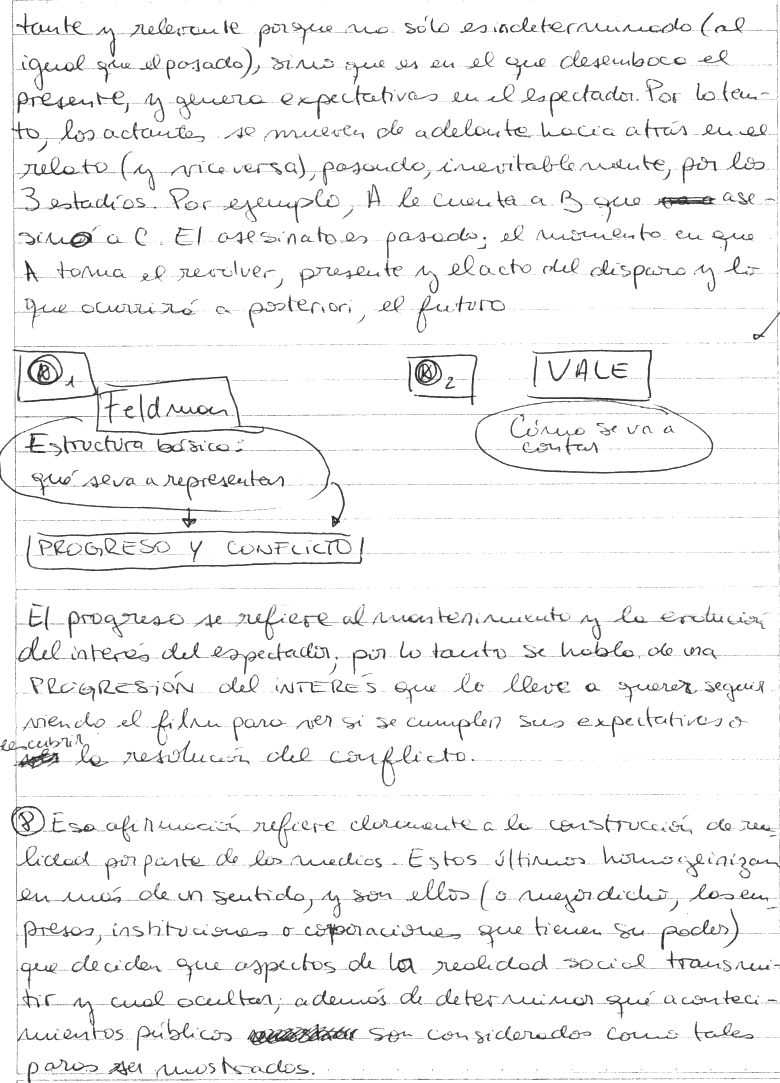 tante y relevante porque no sólo es indeterminado (al
igual que el pasado), sino que es en el que desemboca el
presente, y genera expectativas en el espectador. Por lo tan-
to, los actantes se mueven de adelante hacia atrás en el
relato (y viceversa), pasando, inevitablemente, por los
3 estadíos. Por ejemplo, A le cuenta a B que ase-
sinó a C. El asesinato es pasado; el momento en que
A toma el revolver, presente y el acto del disparo y lo
que ocurrirá a posteriori, el futuro
1
2
VALE
Feldman
Cómo se va a
contar
Estructura básica:
qué se va a representar
PROGRESO Y CONFLICTO
El progreso se refiere al mantenimiento y la evolución
del interés del espectador; por lo tanto se habla de una
PROGRESIÓN del INTERÉS que lo lleve a querer seguir
viendo el film para ver si se cumplen sus expectativas o
descubrir la resolución del conflicto.
8 Esa afirmación refiere claramente a la construcción de rea-
lidad por parte de los medios. Estos últimos homogeinizan
en más de un sentido, y son ellos (o mejor dicho, las em-
presas, instituciones o coporaciones que tienen su poder)
que deciden que aspectos de la realidad social transmi-
tir y cual ocultar; además de determinar qué aconteci-
mientos públicos son considerados como tales
paras ser mostrados.